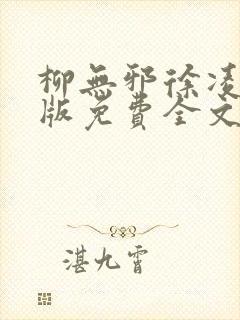 柳無邪徐凌
版免費全文
湛九霄